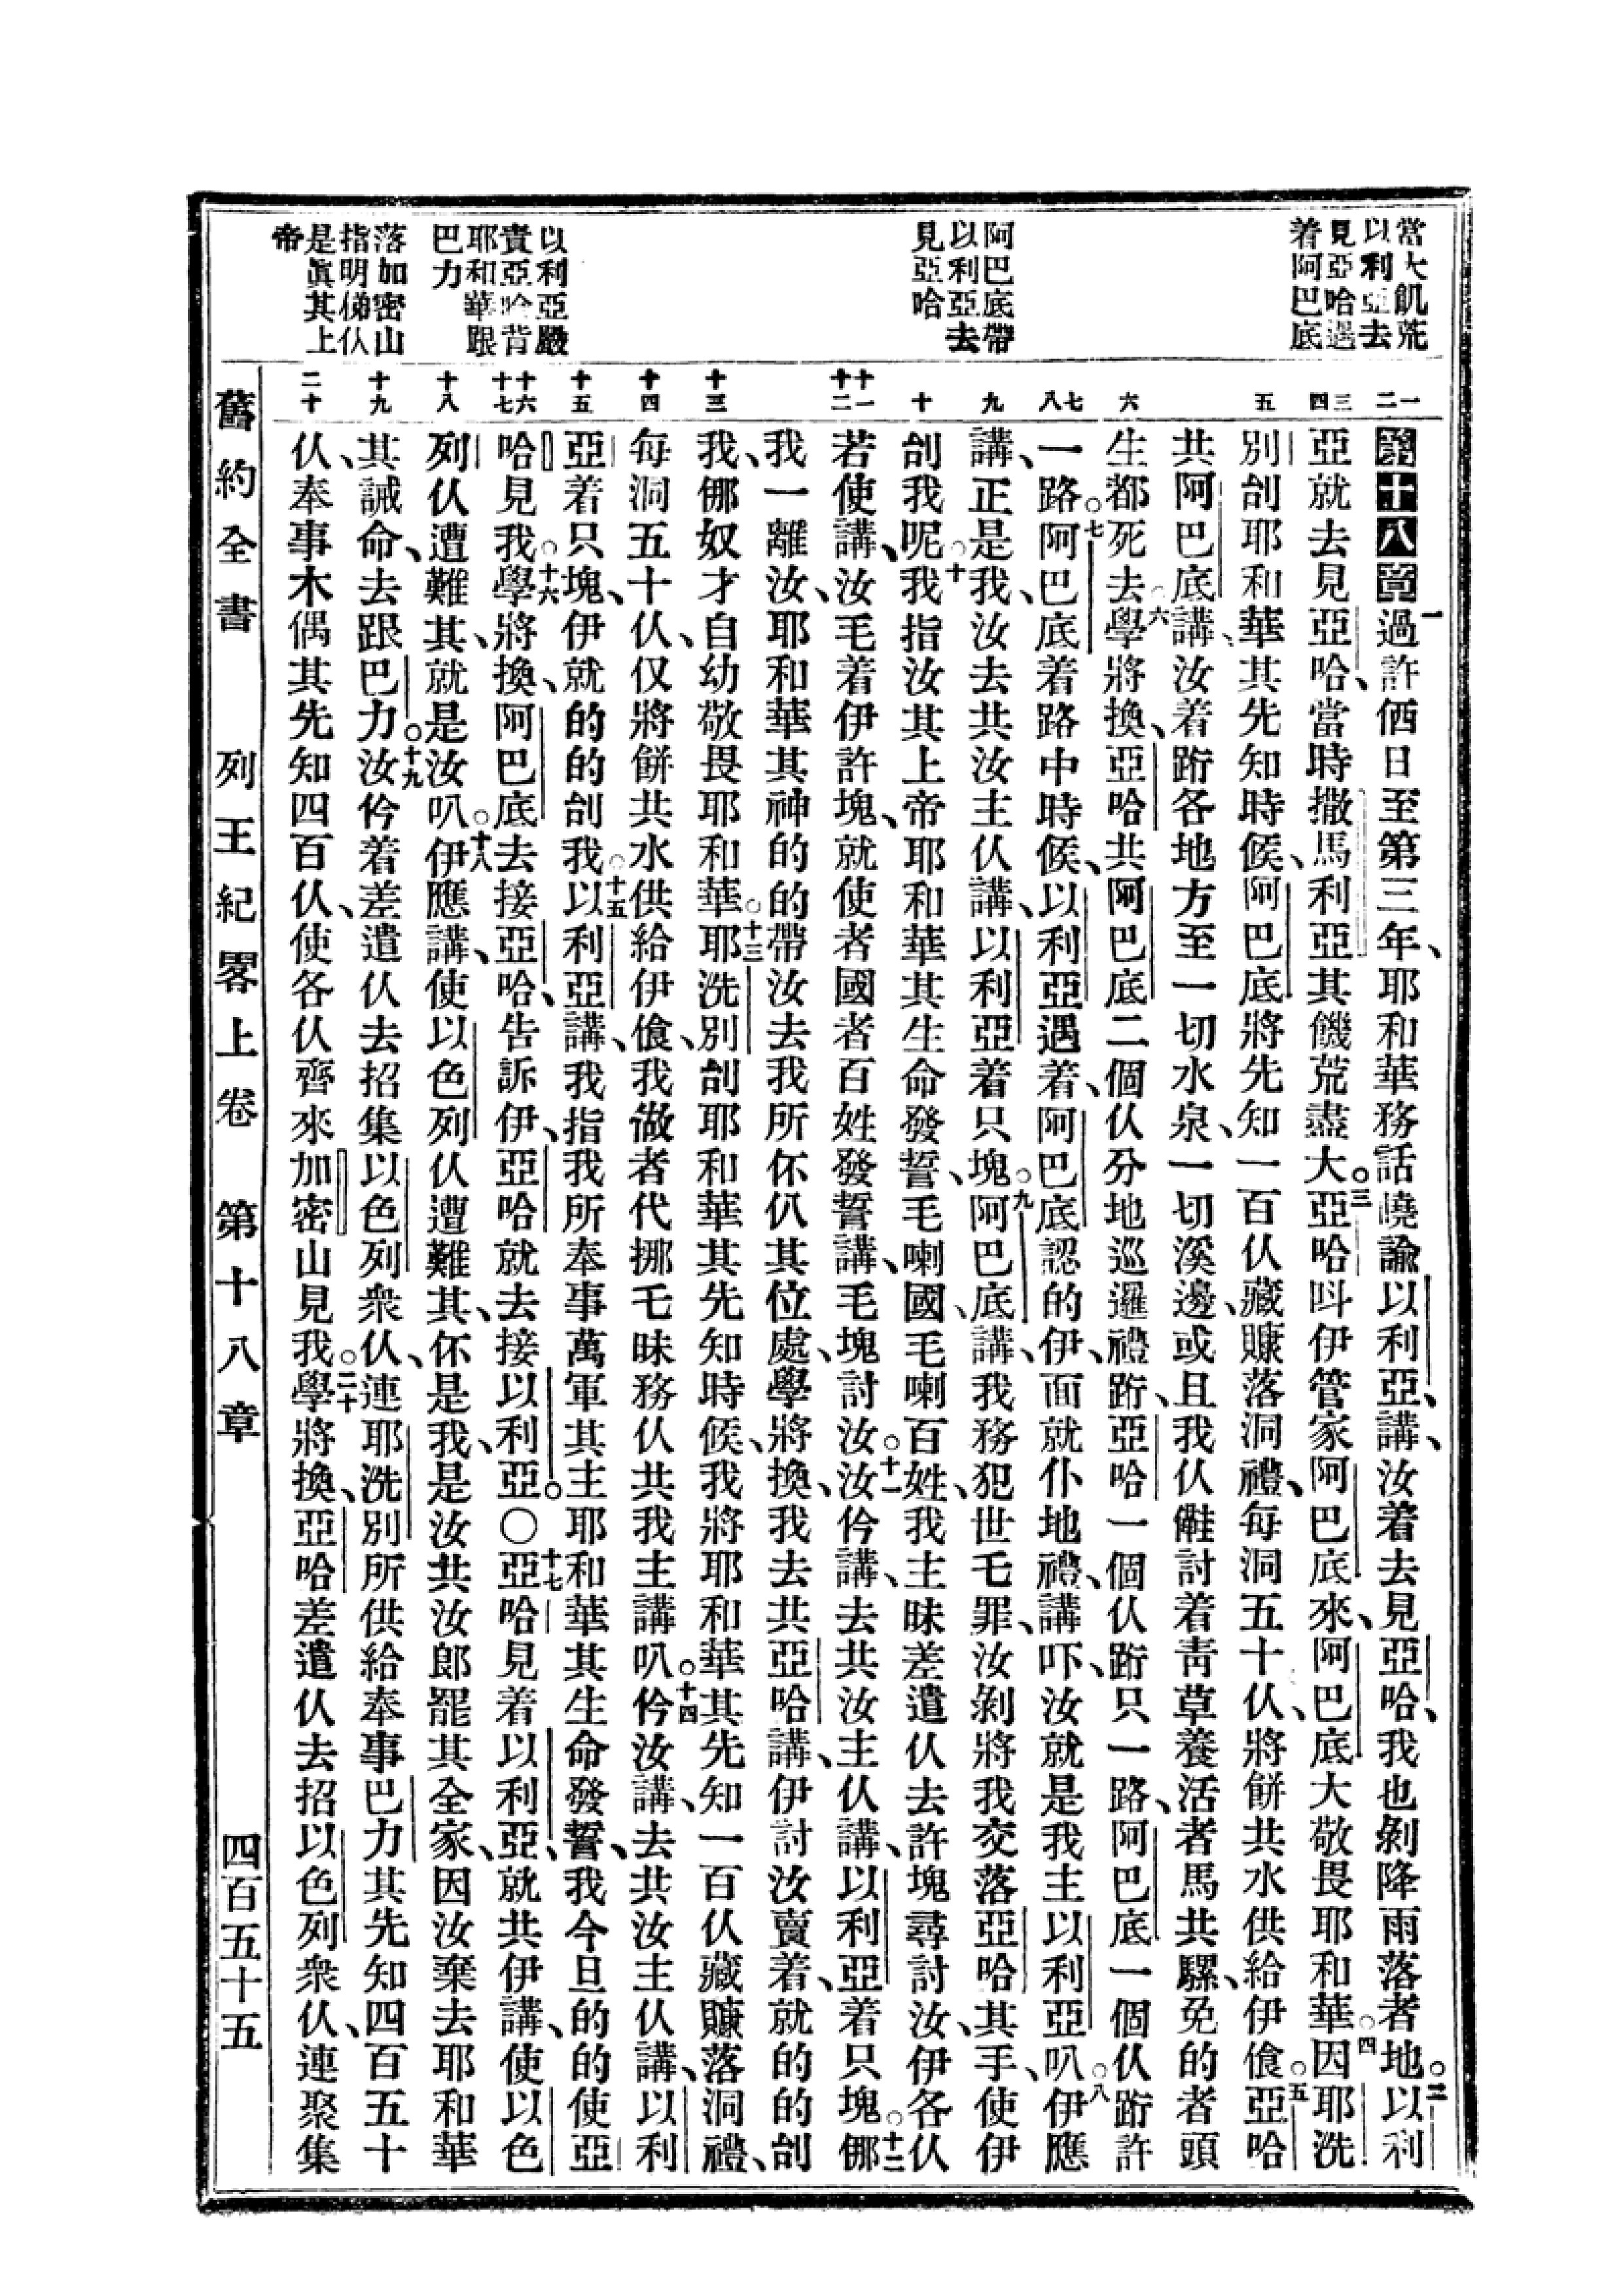 當大飢荒
以利亞去
見亞哈遇
着阿巴底
阿巴底帶
以利亞去
見亞哈
以利亞嚴
責亞哈背
耶和華跟
巴力
落加密山
指明俤仈
是眞其上
帝
一 二
三 四
五
六
七 八
九
十
十一 十二
十三
十四
十五
十六 十七
十八
十九
二十
第十八章 一過許日至第三年、耶和華務話曉諭以利亞、講、汝着去見亞哈、我也剝降雨落者地。二以利
亞就去見亞哈、當時撒馬利亞其饑荒盡大。三亞哈呌伊管家阿巴底來、阿巴底大敬畏耶和華。四因耶洗
別刣耶和華其先知時候、阿巴底將先知一百仈藏賺落洞禮、每洞五十仈、將餅共水供給伊飡。五亞哈
共阿巴底講、汝着跔各地方至一切水泉、一切溪邊、或且我仈儺討着靑草養活者馬共騾、免的者頭
生都死去。六學將換、亞哈共阿巴底二個仈分地巡邏禮跔、亞哈一個仈跔只一路、阿巴底一個仈跔許
一路。七阿巴底着路中時候、以利亞遇着、阿巴底認的伊、面就仆地禮、講吓、汝就是我主以利亞叭。八伊應
講、正是我、汝去共汝主仈講、以利亞着只塊。九阿巴底講、我務犯世乇罪、汝剝將我交落亞哈其手、使伊
刣我呢。十我指汝其上帝耶和華其生命發誓、毛喇國、毛喇百姓、我主昧差遣仈去許塊尋討汝、伊各仈
若使講、汝毛着伊許塊、就使者國者百姓發誓講、毛塊討汝。十一汝仱講、去共汝主仈講、以利亞着只塊。十二㑚
我一離汝、耶和華其神的的帶汝去我所伓仈其位處、學將換、我去共亞哈講、伊討汝賣着、就的的刣
我、㑚奴才自幼敬畏耶和華。十三耶洗別刣耶和華其先知時候、我將耶和華其先知一百仈藏賺落洞禮、
每洞五十仈、仅將餅共水供給伊飡、我做者代挪乇昧務仈共我主講叭。十四仱汝講、去共汝主仈講、以利
亞着只塊、伊就的的刣我。十五以利亞講、我指我所奉事萬軍其主耶和華其生命發誓、我今旦的的使亞
哈見我。十六學將換、阿巴底去接亞哈、告訴伊、亞哈就去接以利亞。〇十七亞哈見着以利亞、就共伊講、使以色
列仈遭難其、就是汝叭。十八伊應講、使以色列仈遭難其、伓是我、是汝共汝郎罷其全家、因汝棄去耶和華
其誡命、去跟巴力。十九汝仱着差遣仈去招集以色列衆仈、連耶洗別所供給奉事巴力其先知四百五十
仈、奉事木偶其先知四百仈、使各仈齊來加密山見我。二十學將換、亞哈差遣仈去招以色列衆仈、連聚集
舊約全書 列王紀畧上卷 第十八章 四百五十五